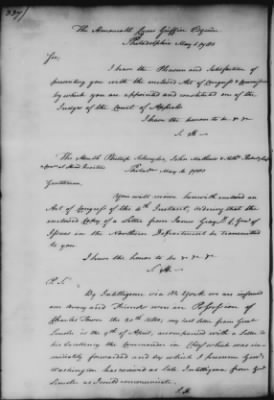 The Honorable Cyrus Griffin Esquire
Philadelphia May 1. 1780
Sir,
I have the Pleasure and Satisfaction of
presenting you with the enclosed Act of Congress & Commission
by which you are appointed and constituted one of the
Judges of the Court of Appeals
I have the honor to be &c &c
S. H.
The Honble Philip Schuyler, John Mathews & Nathl Peabody Esqrs
at Head Quarters
Philada May 1780
Gentlemen,
You will receive herewith enclosed an
Act of Congress of the Instant, ordering that the
enclosed Copy of a Letter from James Gray D. C. Genl of
Issues in the Northern Department be transmitted
to you
I have the honor to be &c &c &c
S. H.
P. S.
By Intelligence via N. York we are informed
our Army and Friends were in Possession of
Charles Town the 20th my last Letter from Genl
Lincoln is the 9th of April, accompanied with a Letter to
his Excellency the Commander in Chief which was im-
mediately forwarded and by which I presume Genl
Washington has received as late Intelligence from Genl
Lincoln as I could communicate.
S. H.